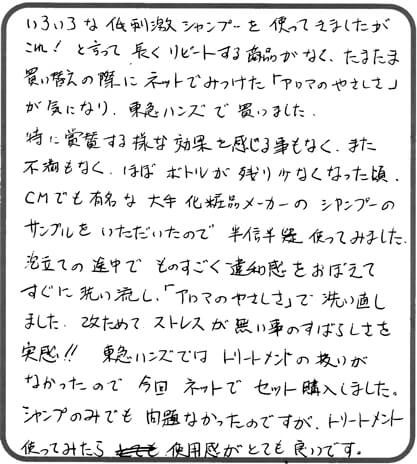 いろいろな低刺激シャンプーを使ってきましたが
これ！と言って長くリピートする商品がなく、たまたま
買い替えの際にネットでみつけた「アロマのやさしさ」
が気になり、東急ハンズで買いました。
特に賞賛する様な効果を感じる事もなく、また
不満もなく、ほぼボトルが残り少なくなった頃、
CMでも有名な大手化粧品メーカーのシャンプーの
サンプルをいただいたので半信半疑使ってみました。
泡立ての途中でものすごく違和感をおぼえて
すぐに洗い流し、「アロマのやさしさ」で洗い直し
ました。改ためてストレスが無い事のすばらしさを
実感!! 東急ハンズではトリートメントの扱いが
なかったので今回ネットでセット購入しました。
シャンプのみでも問題なかったのですが、トリートメント
使ってみたら使用感がとても良いです。